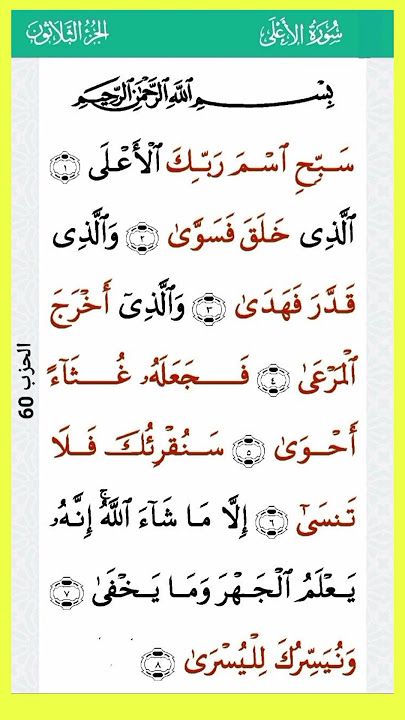 سُورَةُ الأَعْلَى
الجُزْءُ الثَّلَاثُونَ
بِسْمِ ٱللَّهِ ٱلرَّحْمَٰنِ ٱلرَّحِيمِ
سَبِّحِ ٱسْمَ رَبِّكَ ٱلْأَعْلَى ١
ٱلَّذِى خَلَقَ فَسَوَّىٰ ٢ وَٱلَّذِى
قَدَّرَ فَهَدَىٰ ٣ وَٱلَّذِىٓ أَخْرَجَ
ٱلْمَرْعَىٰ ٤ فَجَعَلَهُۥ غُثَآءً
أَحْوَىٰ ٥ سَنُقْرِئُكَ فَلَا
تَنسَىٰٓ ٦ إِلَّا مَا شَآءَ ٱللَّهُ ۚ إِنَّهُۥ
يَعْلَمُ ٱلْجَهْرَ وَمَا يَخْفَىٰ ٧
وَنُيَسِّرُكَ لِلْيُسْرَىٰ ٨
الحزب 60